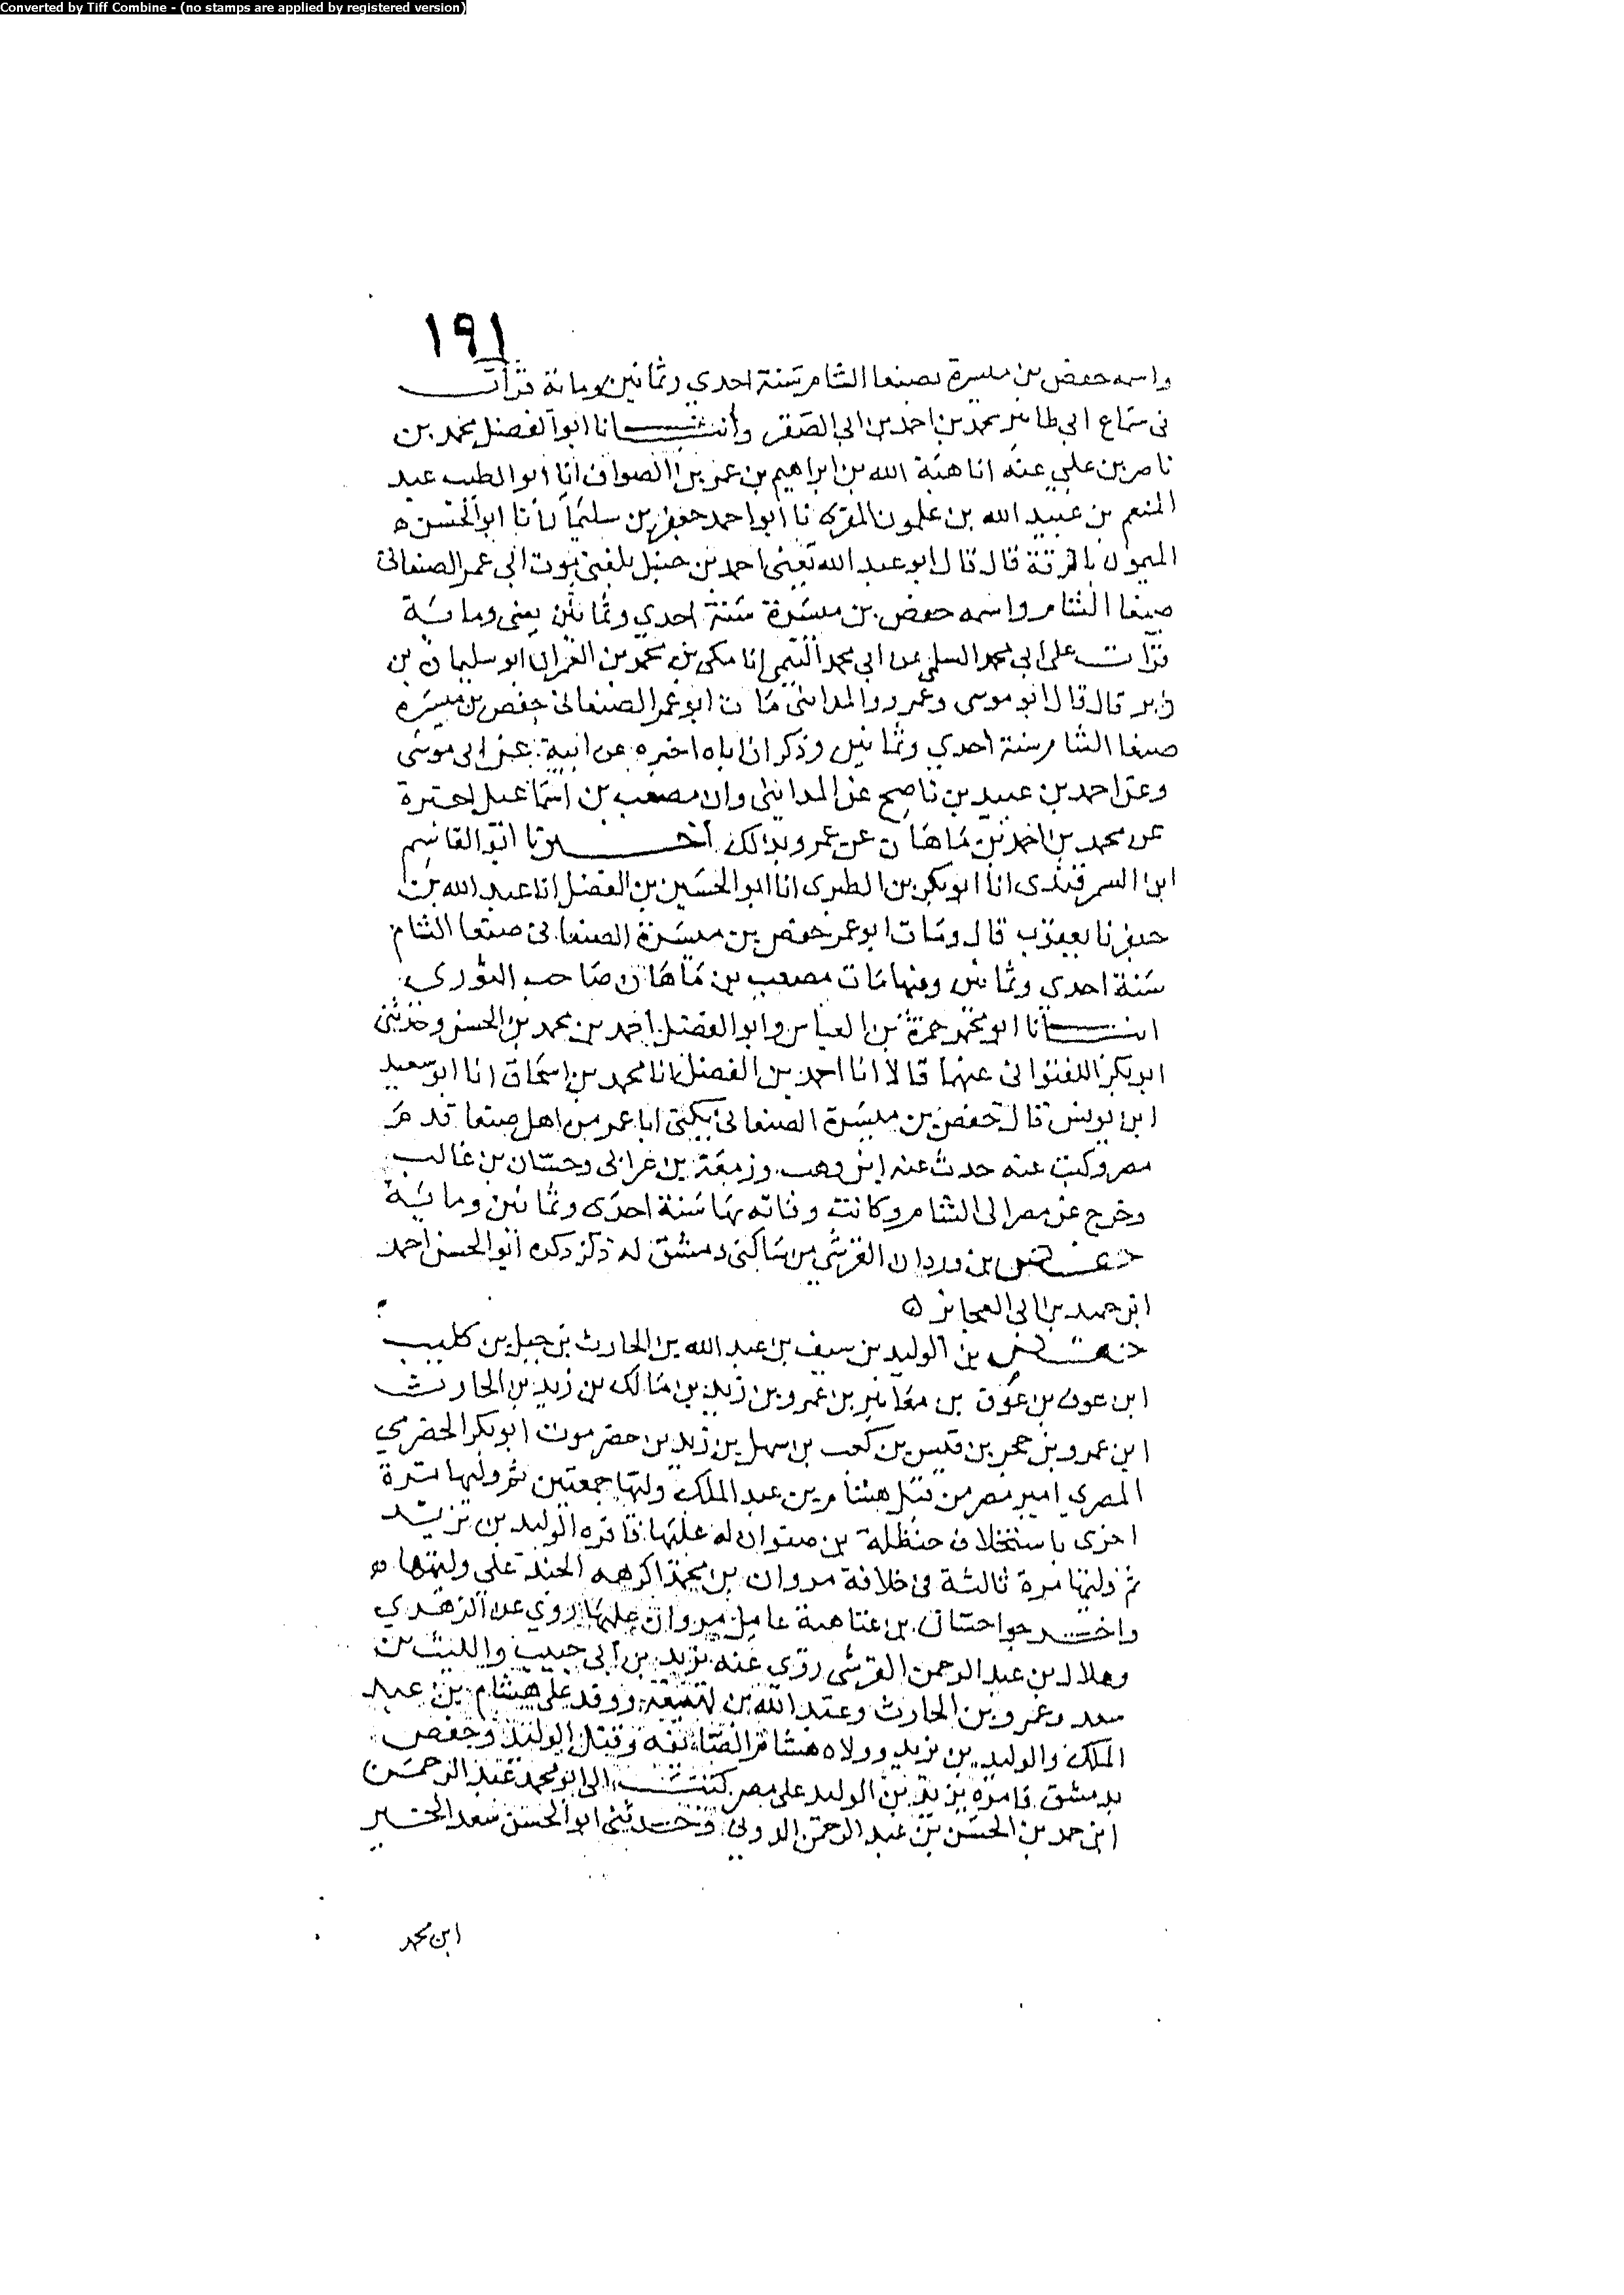 Converted by Tiff Combine - (no stamps are applied by registered version)
١٩١
واسمه حفص بن ميسرة بصنعا الشام سنة احدي وثمانين ومائة قرأت
في سماع ابي طاهر محمد بن احمد بن ابي الصقر وأنبـــانا ابو الفضل محمد بن
ناصر بن علي عنه انا هبة الله بن ابراهيم بن عمر بن الصواف انا ابو الطيب عبد
المنعم بن عبيد الله بن غلبون المقري نا ابو احمد جعفر بن سليمان نا ابو الحسن
الميموني بالرقة قال قال ابو عبد الله يعني احمد بن حنبل بلغني موت ابي عمر الصنعاني
صنعا الشام واسمه حفص بن ميسرة سنة احدي وثمانين يعني ومائة
قرأت على ابي محمد السلمي عن ابي محمد التميمي انا مكي بن محمد بن الغمر انا ابو سليمان بن
زبر قال قال ابو موسى وعمرو والمدائني مات ابو عمر الصنعاني حفص بن ميسرة
صنعا الشام سنة احدي وثمانين وذكر ان اباه اخبره عن ابيه عن ابي موسى
وعن احمد بن عبيد بن ناصح عن المدائني وان مصعب بن اسماعيل اخبره
عن محمد بن احمد بن ماهان عن عمرو بذلك أخـــبرنا ابو القاسم
ابن السمرقندي انا ابو بكر بن الطبري انا ابو الحسين بن الفضل انا عبد الله بن
جعفر نا يعقوب قال ومات ابو عمر حفص بن ميسرة الصنعاني صنعا الشام
سنة احدى وثمانين وفيها مات مصعب بن ماهان صاحب الثوري
انبـــأنا ابو محمد حمزة بن العباس وابو الفضل احمد بن محمد بن الحسن وحدثني
ابو بكر اللفتواني عنهما قالا انا احمد بن الفضل انا محمد بن اسحاق انا ابو سعيد
ابن يونس قال حفص بن ميسرة الصنعاني يكنى ابا عمر من اهل صنعا قدم
مصر وكتب عنه حدث عنه ابن وهب وزمعة بن عرابي وحسان بن غالب
وخرج عن مصر الى الشام وكانت وفاته بها سنة احدى وثمانين ومائة
حفـــص بن وردان القرشي من ساكني دمشق له ذكر ذكره ابو الحسن احمد
ابن حميد بن ابي العجائز ه
حفـــص بن الوليد بن سيف بن عبد الله بن الحارث بن جبل بن كليب
ابن عوف بن عوف بن معاهر بن عمرو بن زيد بن مالك بن زيد بن الحارث
ابن عمرو بن حجر بن قيس بن كعب بن سهل بن زيد بن حضرموت ابو بكر الحضرمي
المصري امير مصر من قبل هشام بن عبد الملك وليها جمعتين ثم وليها مرة
اخرى باستخلاف حنظلة بن صفوان له عليها فاقره الوليد بن يزيد
ثم وليها مرة ثالثة في خلافة مروان بن محمد اكرهه الجند على وليتها
واخـــرجوا حسان بن عتاهية عامل مروان عليها روى عن الزهري
وهلال بن عبد الرحمن القرشي روى عنه يزيد بن ابي حبيب والليث بن
سعد وعمرو بن الحارث وعبد الله بن لهيعة ووفد على هشام بن عبد
الملك والوليد بن يزيد وولاه هشام الصائفة وقتل الوليد وحفص
بدمشق فامره يزيد بن الوليد على مصر كتـــب الى ابو محمد عبد الرحمن
ابن حمد بن الحسن بن عبد الرحمن الدوني وحـــدثني ابو الحسن سعد الخير
ابن محمد